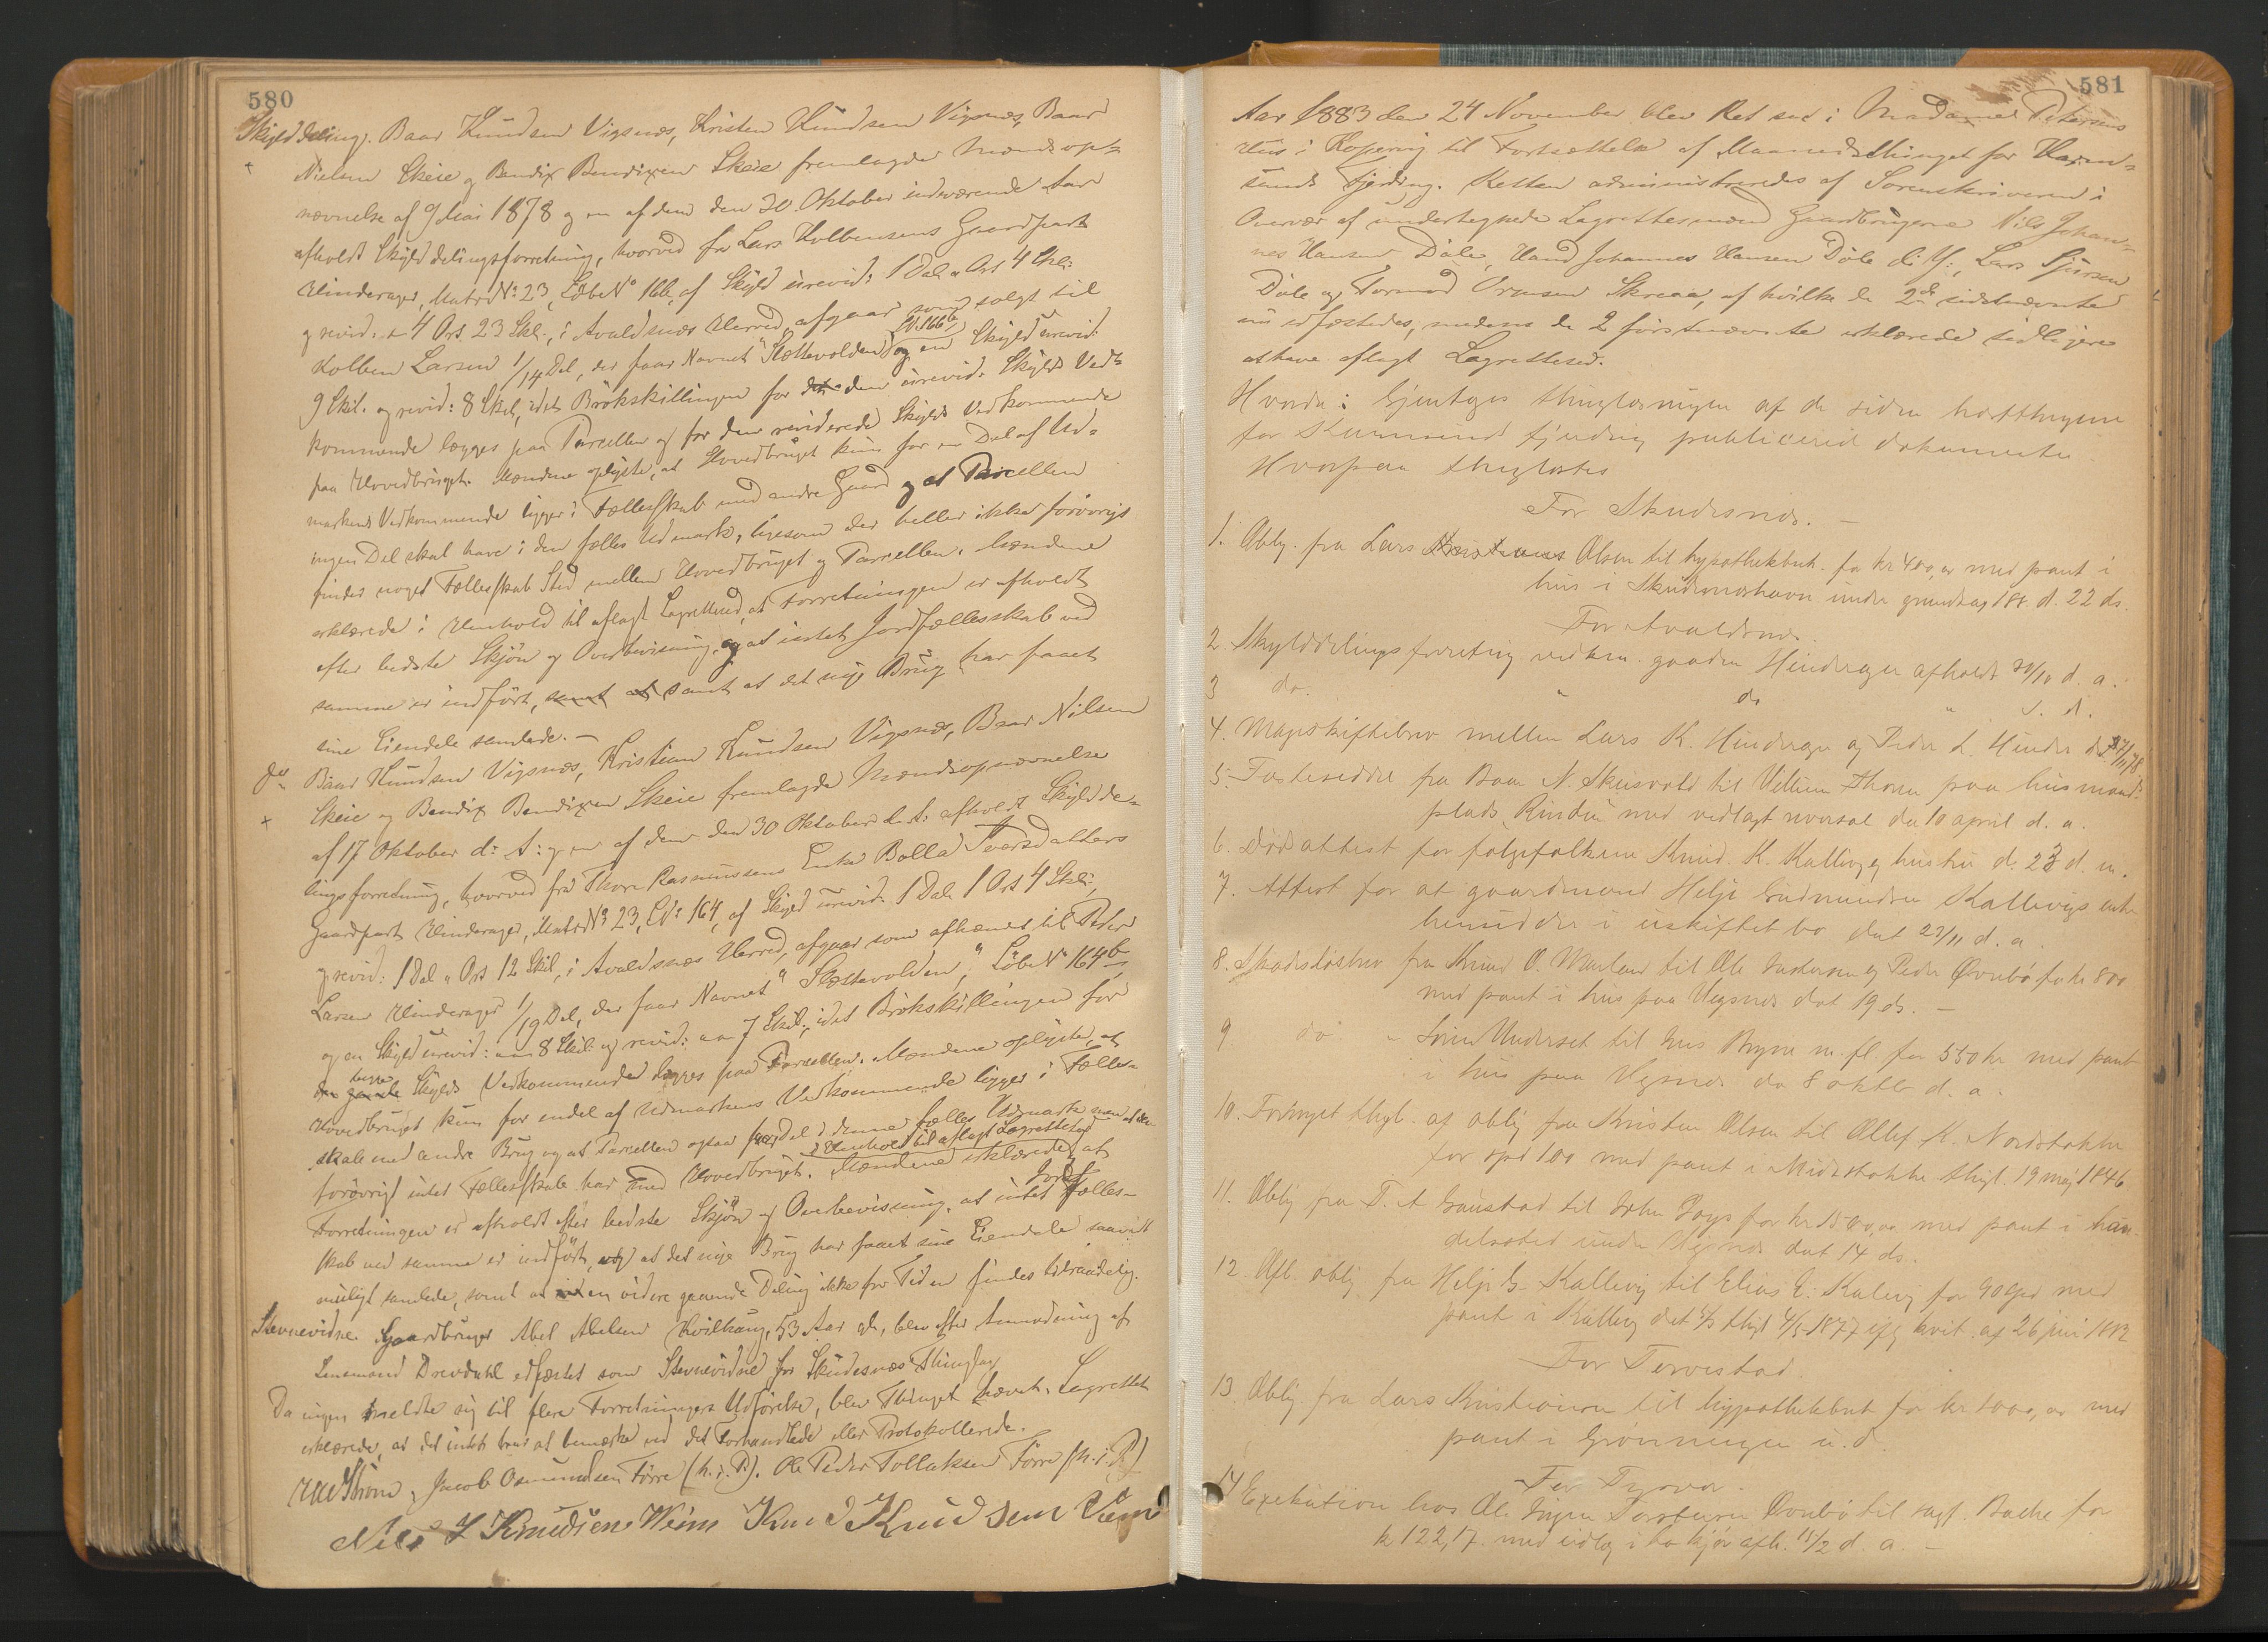 580
Skylddeling. Baar Knudsen Vigsnæs, Kristen Knudsen Vigsnæs, Baar
+ Nielsen Skeie og Bendix Bendixen Skeie fremlagde Mændsop-
nævnelse af 9 Mai 1878 og en af dem den 30. Oktober indeværende Aar
afholdt Skylddelingsforretning, hvorved fra Lars Kolbensens Gaardpart
Hinderager, Matr. No: 23, Løbe No 166, af Skyld urevid: 1 Dal. " Ort 4 Skil:
og revid: " 4 Ort 23 Skl., i Avaldsnæs Herred, afgaar som solgt til
Kolben Larsen 1/14 Del, der faar Navnet "Slettevolden" LN. 166b og en Skyld urevid:
9 Skil. og revid: 8 Skil, idet Brøkskillingen for den urevid. Skylds Ved-
kommende lægges paa Parcellen og for den reviderede Skylds Vedkommende
paa Hovedbruget. Mændene oplyste, at Hovedbruget kun for en Del af Ud-
markens Vedkommende ligger i Fællesskab med andre Gaard og at Parcellen
ingen Del skal have i den fælles Udmark, ligesom der heller ikke forøvrigt
findes noget Fællesskab Sted mellem Hovedbruget og Parcellen. Mændene
erklærede i Henhold til aflagt Lagretteed, at Forretningen er afholdt
efter bedste Skjøn og Overbevisning, og at intet Jordfællesskab ved
samme er indført, samt at samt at det nye Brug har faaet
sine Eiendele samlede. —
do Baar Knudsen Vigsnæs, Kristian Knudsen Vigsnæs, Baar Nilsen
+ Skeie og Bendix Bendixen Skeie fremlagde Mændsopnævnelse
af 17 Oktober d: A: og en af dem den 30 Oktober d. A: afholdt Skyldde-
lingsforretning, hvorved fra Thore Rasmussens Enke Bolla Tversdatters
Gaardpart Hinderager, Matr No 23, LN: 164, af Skyld urevid. 1 Dal. 1 Ort 4 Skil:,
og revid: 1 Dal " Ort 12 Skil, i Avaldsnæs Herred, afgaar som afhændet til Peder
Larsen Hinderager 1/19 Del, der faar Navnet "Slettevolden," Løbe No 164b,
og en Skyld urevid: " " 8 Skil. og revid: " " 7 Skil, idet Brøkskillingen for
begge Skylds Vedkommende lægges paa Parcellen. Mændene oplyste, at
Hovedbruget kun for endel af Udmarkens Vedkommende ligger i Fælles-
skab med andre Brug og at Parcellen ogsaa faar Del i denne fælles Udmark men at den
forøvrigt intet Fællesskab har med Hovedbruget. Mændene erklærede i Henhold til aflagt Lagretteed at
Forretningen er afholdt efter bedste Skjøn og Overbevisning, at intet Jordfælles-
skab ved samme er indført, og at det nye Brug har faaet sine Eiendele saavidt
muligt samlede, samt at en videre gaaende Deling ikke for Tiden findes tilraadelig.
Stevnevidne. Gaardbruger Abel Abelsen Kvilhaug, 53 Aar gl., blev efter Anmodning af
Lensmand Drevdahl edfæstet som Stevnevidne for Skudesnæs Thinglag
Da ingen meldte sig til flere Forretningers Udførelse, blev Thinget hævet. Lagrettet
erklærede, at det intet har at bemærke ved det Forhandlede eller Protokollerede.
Jacob Osmundsen Førre (h. i. P.). Ole Peder Tollaksen Førre (h. i. P.)
Nils L Knudsen Knud Knudsen
581
Aar 1883 den 24 November blev Ret sat i Madame Petersens
Hus i Kopervig til Fortsættelse af Maanedsthinget for Karm-
sunds Fjerding. Retten administreredes af Sorenskriveren i
Overvær af undertegnede Lagrettesmænd Gaardbrugerne Nils Johan-
nes Hansen Dale, Hans Johannes Hansen Dale, Lars Sjursen
Dale og Tormod Ormsen Skreaa, af hvilke de 2de sidstnævnte
nu edfæstedes, medens de 2 førstnævnte erklærede tidligere
at have aflagt Lagretteed.
Hvorda: Gjentages thinglæsningen af de siden høstthingene
for Karmsund fjerding publicerede dokumenter.
Hvorpaa thinglæstes
For Skudesnæs. —
1. Oblg. fra Lars Kristians Olsen til hypothekbnk. for kr 400,00 med pant i
hus i Skudesneshavn under d. 22 ds.
For Avaldsnes.
2. Skylddelingsforretning vedkom. gaarden Hinderager afholdt 30/10 d. a.
3 do. " do " s. d.
4. Mageskiftebrev mellem Lars K. Hinderager og Peder L. Hinder
5. Fæsteseddel fra Baar N. Skeisvold til Villum Thorsen paa husmands-
plads Rindin med vedlagt reversal da 10 april d. a.
6. Dødsattest for folgefolkene Knud K. Kallevig og hustru d. 23 d. m.
7. Attest for at gaardmand Helje Gudmundsen Kallevigs enke
hensidder i uskiftet bo dat 23/11 d. a.
8. Skadesløsbrev fra Knud O. til Ole Gundersen og Peder Øvrebø for kr 800
med pant i hus paa Vigsnes dat 19 ds. —
9. do " Søren Underset til Jens Bryne m. fl. for 550 kr med pant
i hus paa Vigsnes da 8 oktb d. a.
10. Fornyet thgl. af oblig fra Kristen Olsen til Ollef K. Nordstokke
for spd 100 med pant i Midtstokke thgl. 19 maj 1846
11. Oblig fra T. A Gaustad til John Joys for kr 1500,00 med pant i han-
delssted under Vigsnes dat 14 ds.
12 Afl. oblig fra Helje G. Kallevig til Elias E. Kalevig for 90 spd med
pant i Kallevig 1877 ifg kvit. af 26 juni 1882
For Tervestad.
13 Oblig. fra Lars Kristiansen til hypothekbnk for kr 1000,00 med
pant i Grønningen u. d.
For Tysvær.
14 Exekution hos Ole Ingen Torstensen Øvrebø til sagf. Bache for
kr 122,17 med udlæg i afh. 11/2 d. a. —